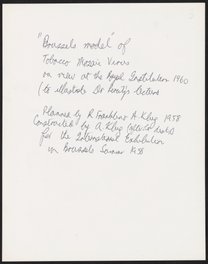 "Brussels model" of
Tobacco Mosaic Virus
on view at the Royal Institution 1960
(to illustrate Dr lectures
Planned by R Franklin & A. Klug 1958
Constructed by A. Klug
for the International Exhibition
in Brussels Summer